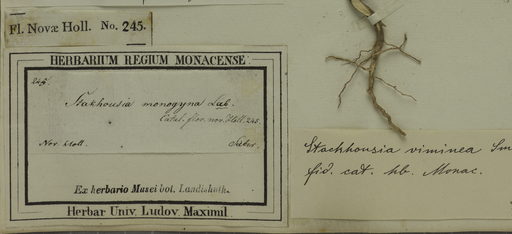 Fl. Novæ Holl. No. 245.
HERBARIUM REGIUM MONACENSE.
245.
Stakhousia monogyna Lab.
Catal. flor. nov. Holl. 245.
Nov. Holl. Sieber.
Ex herbario Musei bot. Landishuth.
Herbar. Univ. Ludov. Maximil.
Stackhousia viminea Sm
fid. cat. hb. Monac.